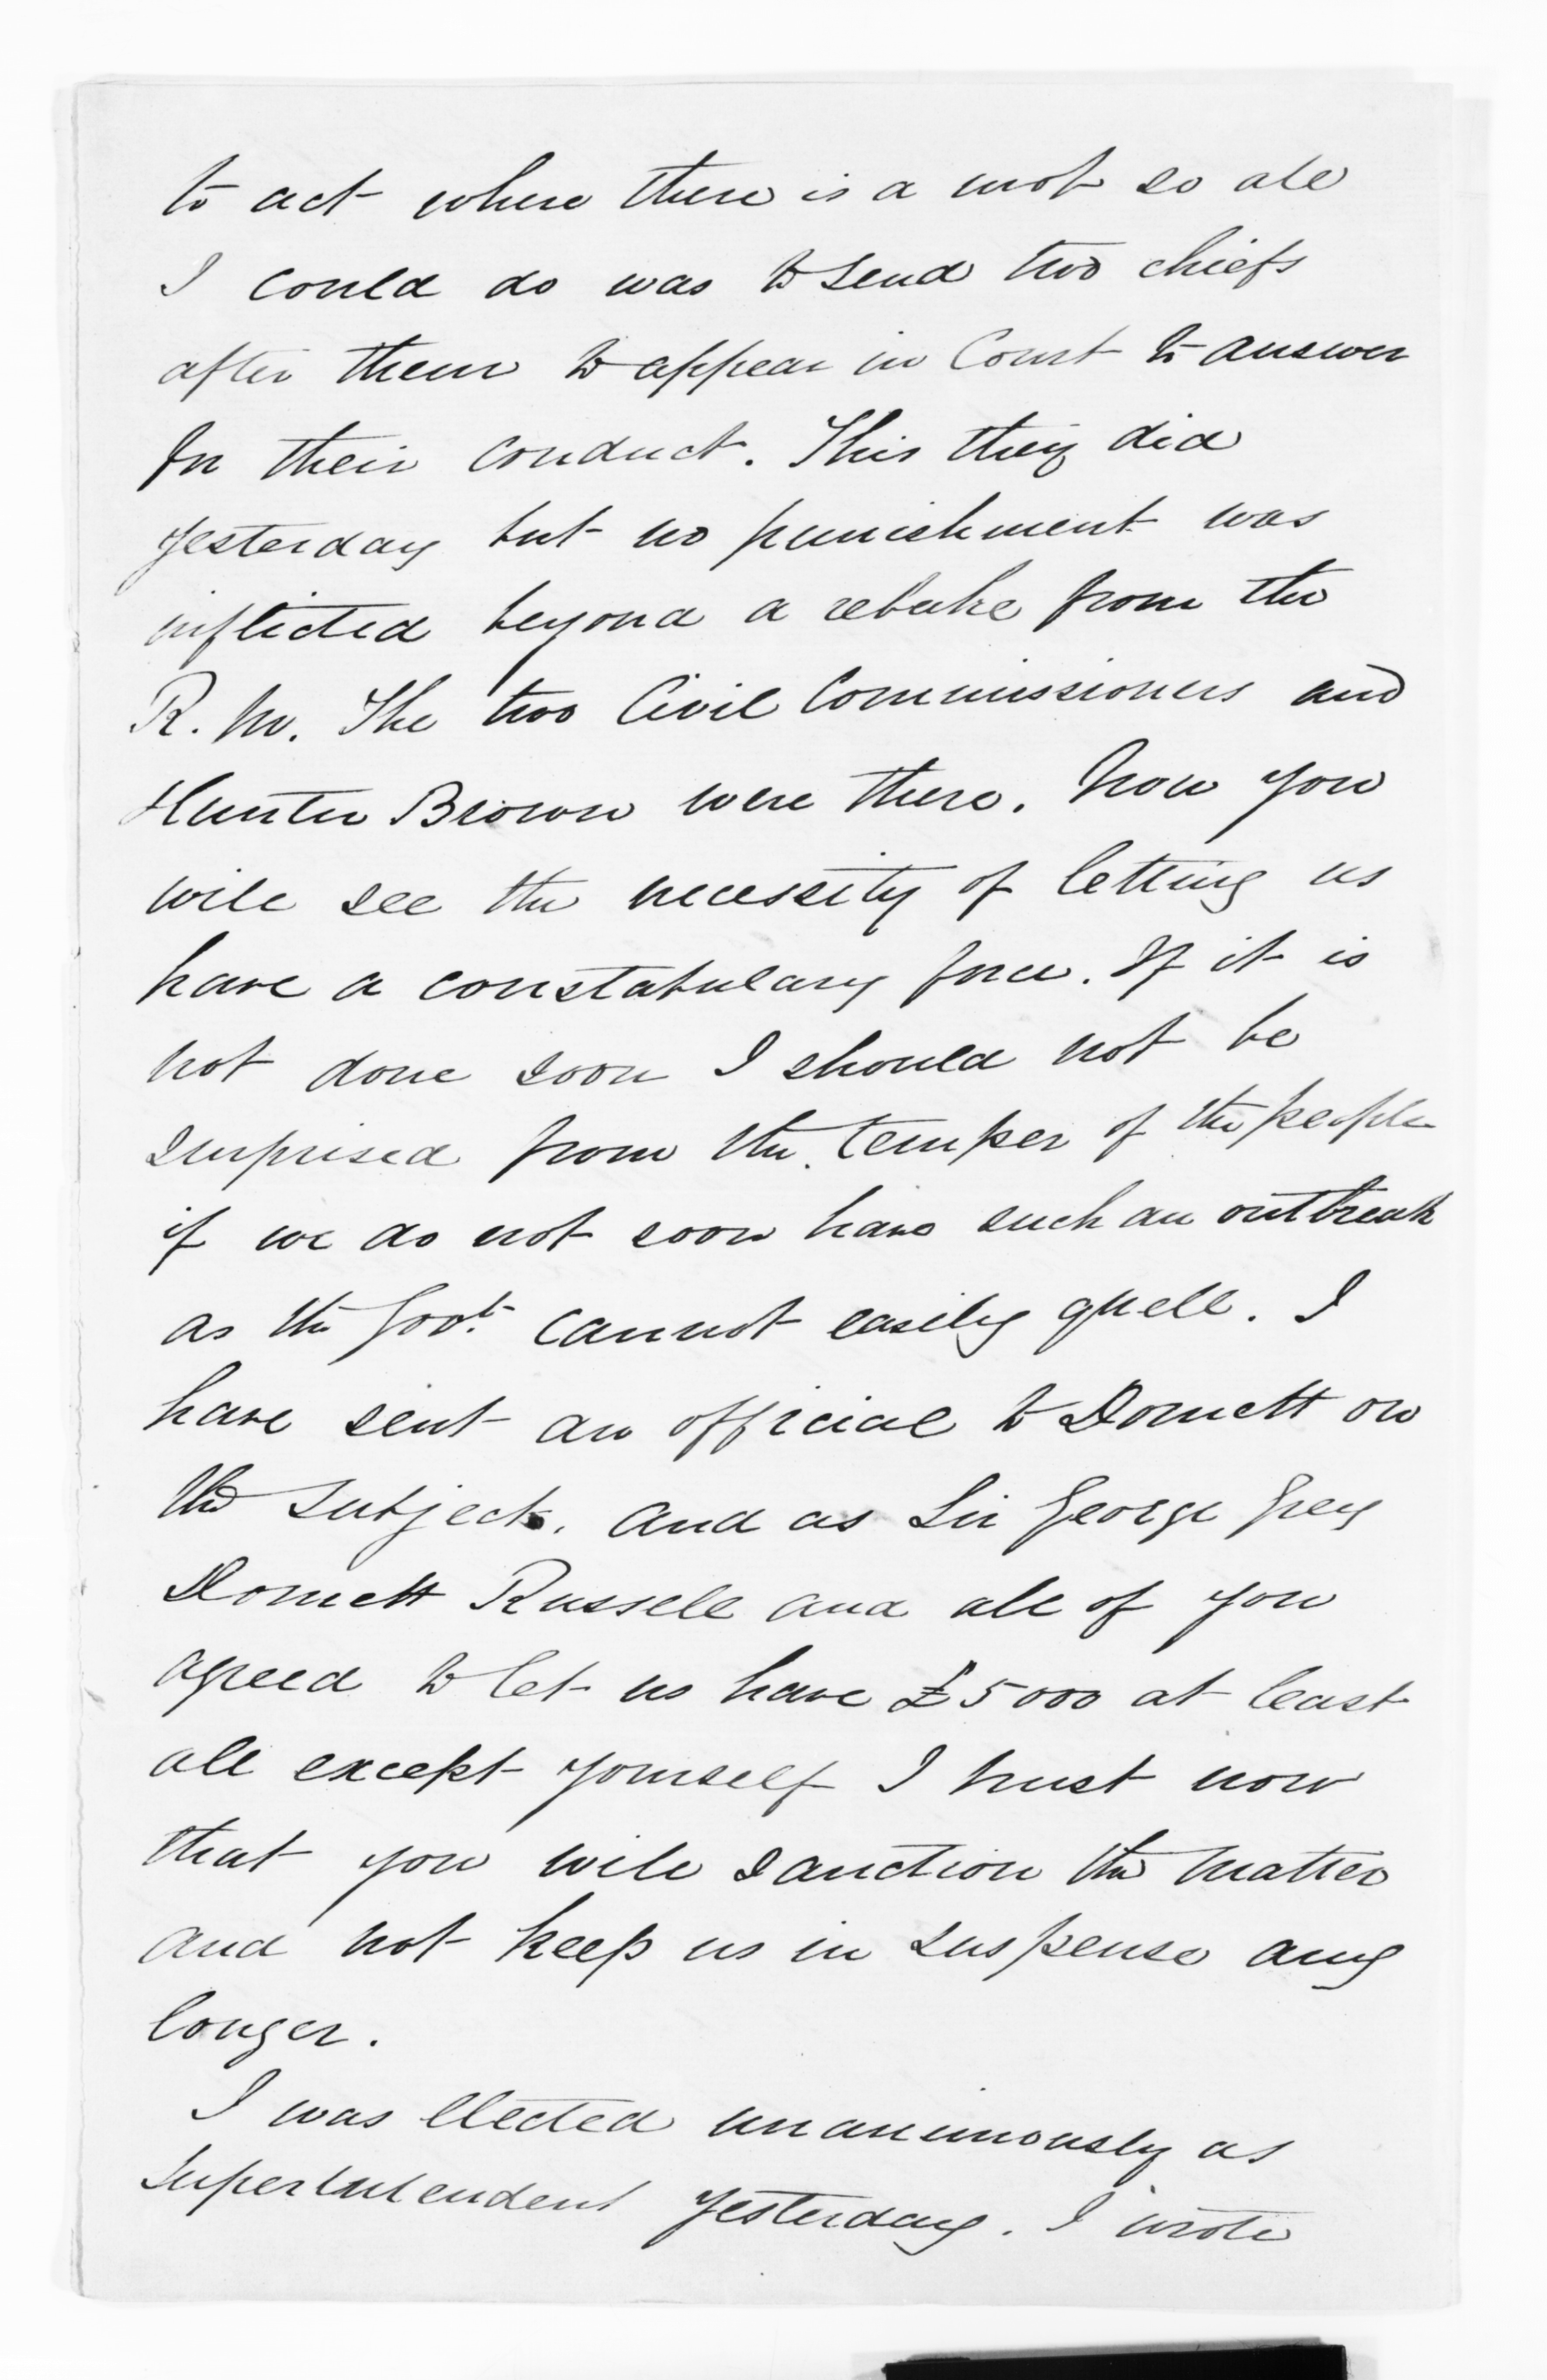 to act where there is a mob so all
I could do was to send two chiefs
after them to appear in Court to answer
for their conduct. This they did
yesterday but no punishment was
inflicted beyond a rebuke from the
R. M. The two Civil Commissioners and
Hunter Brown were there. Now you
will see the necessity of letting us
have a constabulary force. If it is
not done soon I should not be
surprised from the temper of the people
if we do not soon have such an outbreak
as the Govt. cannot easily quell. I
have sent an official to Domett on
the subject. And as Sir George Grey
Domett Russell and all of you
agreed to let us have £5000 at least
all except yourself I trust now
that you will sanction the matter
and not keep us in suspense any
longer.
I was elected unanimously as
Superintendent yesterday. I wrote